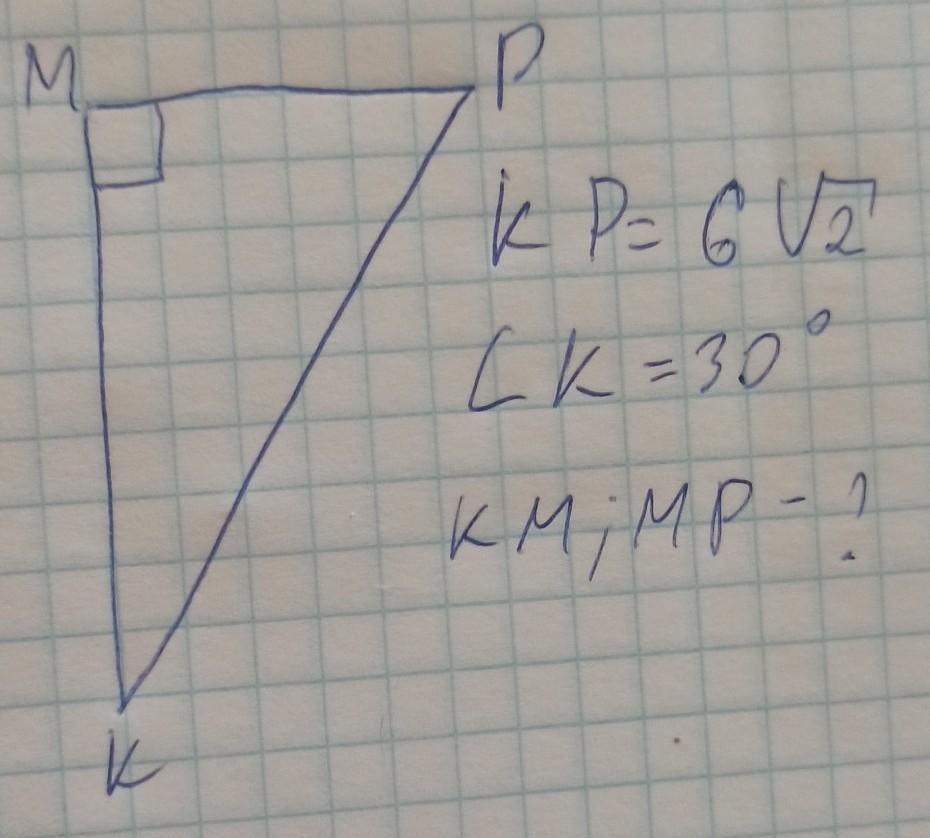 M
P
KP= 6√2
∠K=30°
KM; MP - ?
K